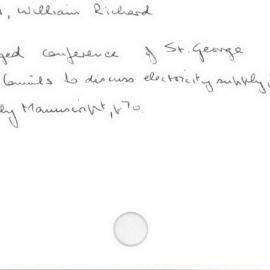 , William Richard
ged conference of St. George
to discuss electricity supply
Manuscript, p70.